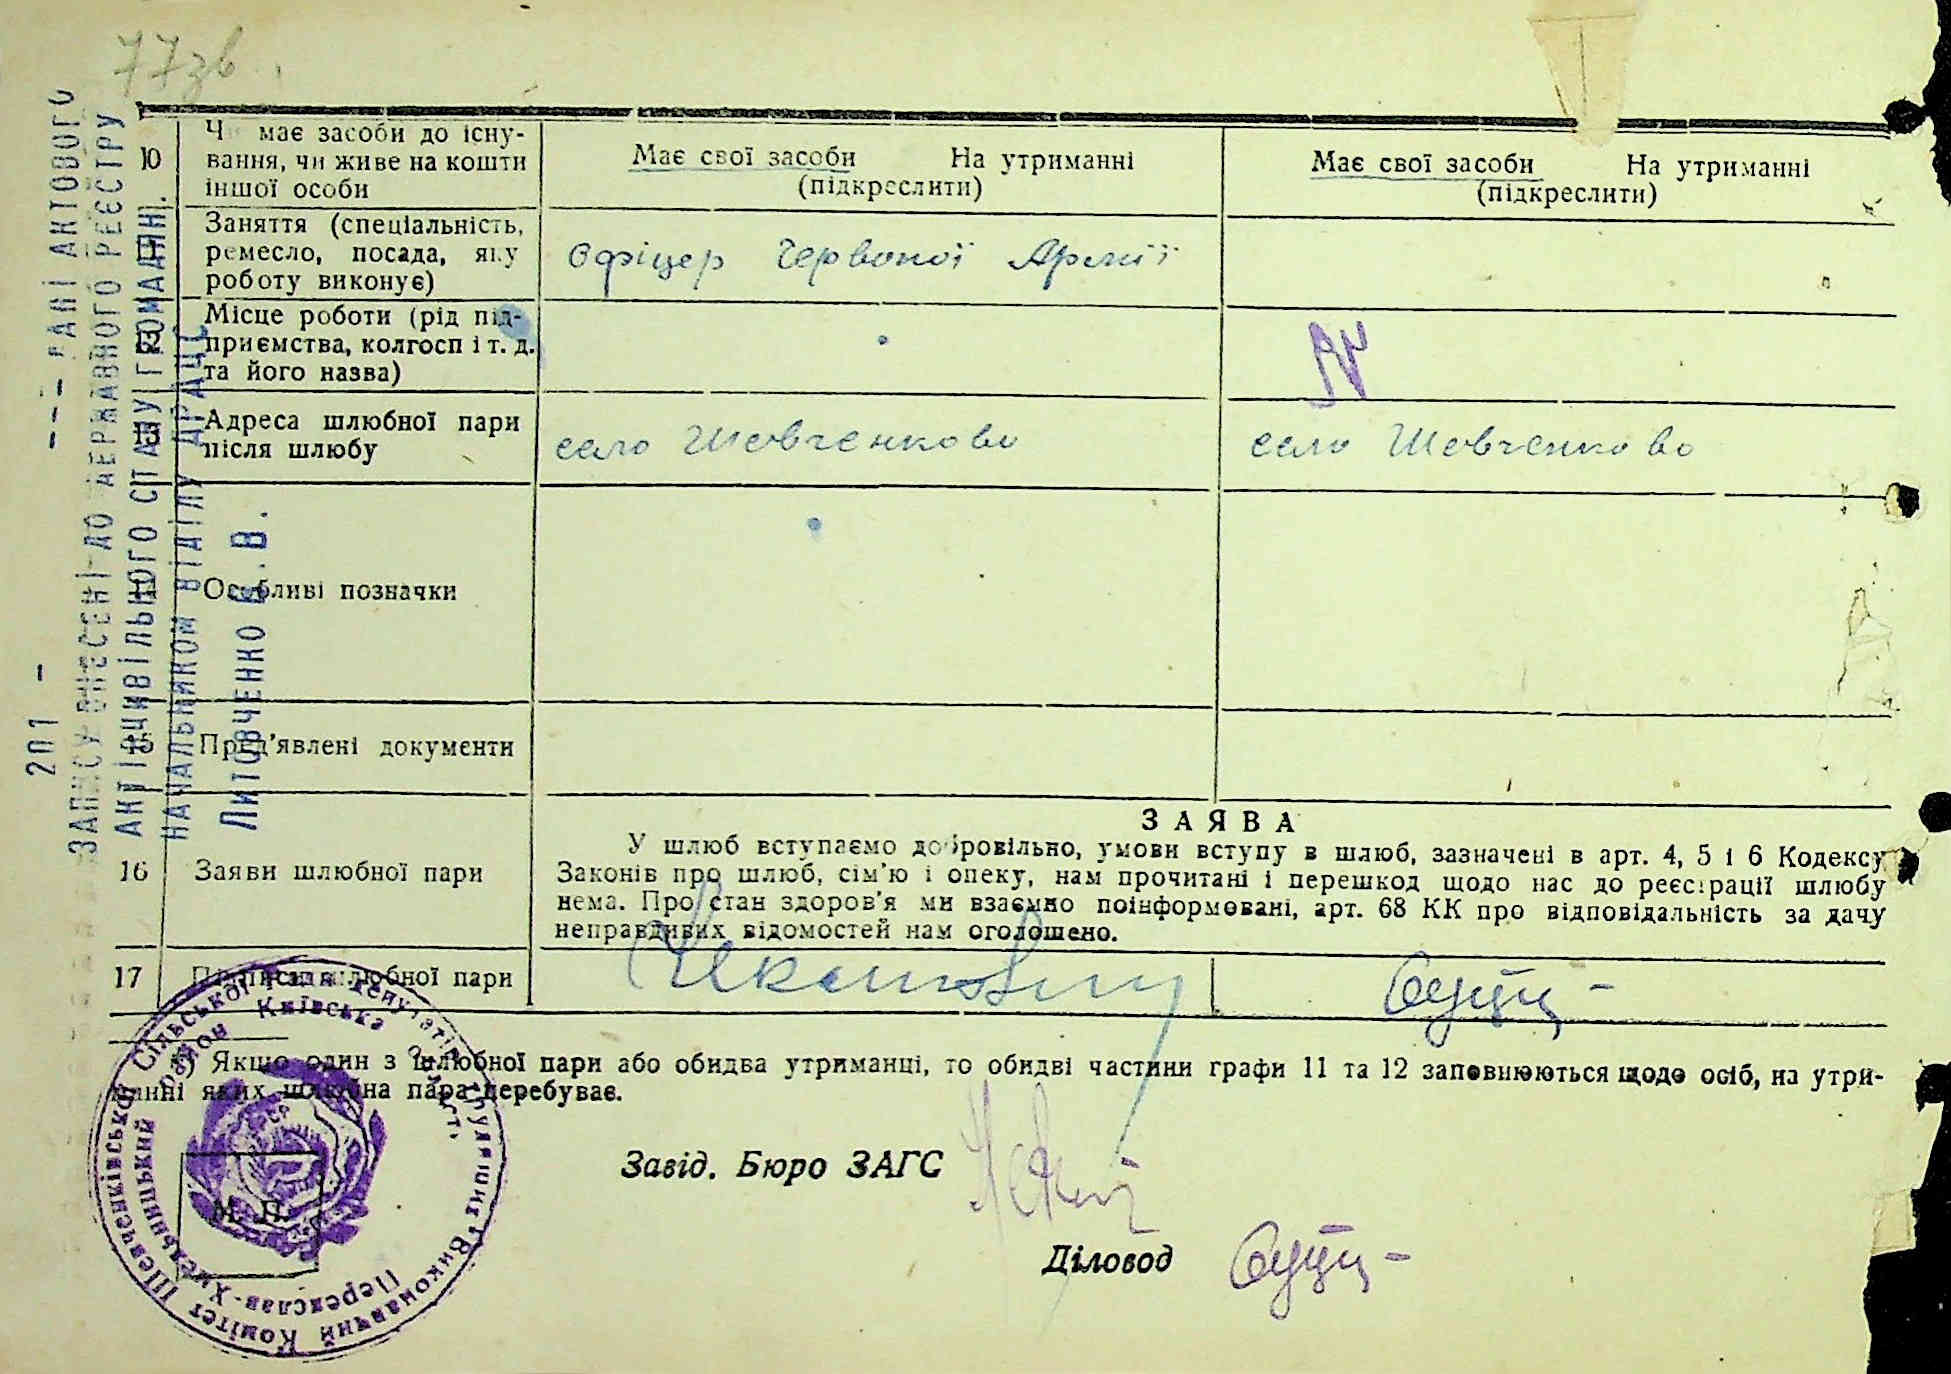 77зв.
10 Чи має засоби до існу-
вання, чи живе на кошти
іншої особи
Має свої засоби На утриманні
(підкреслити)
Має свої засоби На утриманні
(підкреслити)
11 Заняття (спеціальність,
ремесло, посада, яку
роботу виконує)
Офіцер Червоної Армії
12 Місце роботи (рід під-
приємства, колгосп і т. д.
та його назва)
13 Адреса шлюбної пари
після шлюбу
село Шевченково
село Шевченково
14 Особливі позначки
15 Пред’явлені документи
16 Заяви шлюбної пари
ЗАЯВА
У шлюб вступаємо добровільно, умови вступу в шлюб, зазначені в арт. 4, 5 і 6 Кодексу
Законів про шлюб, сім’ю і опеку, нам прочитані і перешкод щодо нас до реєстрації шлюбу
нема. Про стан здоров’я ми взаємно поінформовані, арт. 68 КК про відповідальність за дачу
неправдивих відомостей нам оголошено.
17 Підписи шлюбної пари
Якщо один з шлюбної пари або обидва утриманці, то обидві частини графи 11 та 12 заповнюються щодо осіб, на утри-
манні яких шлюбна пара перебуває.
Завід. Бюро ЗАГС
Діловод
М. П.
Виконавчий Комітет Шевченківської Сільської Ради депутатів трудящих
Переяслав-Хмельницький район Київська область
201 - --- ДАНІ АКТОВОГО
ЗАПИСУ ВНЕСЕНІ ДО ДЕРЖАВНОГО РЕЄСТРУ
АКТІВ ЦИВІЛЬНОГО СТАНУ ГРОМАДЯН.
НАЧАЛЬНИКОМ ВІДІЛУ ДРАЦС
Литовченко К.В.